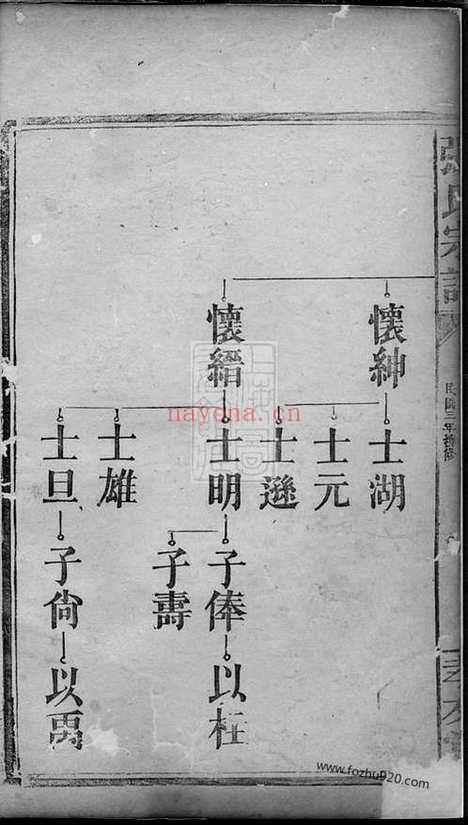 氏宗譜
民國三年
懷紳
士湖
士元
士遜
懷縉
士明
子俸
以枉
子壽
士雄
士旦
子尙
以禹
nayona.cn
www.fozhu920.com